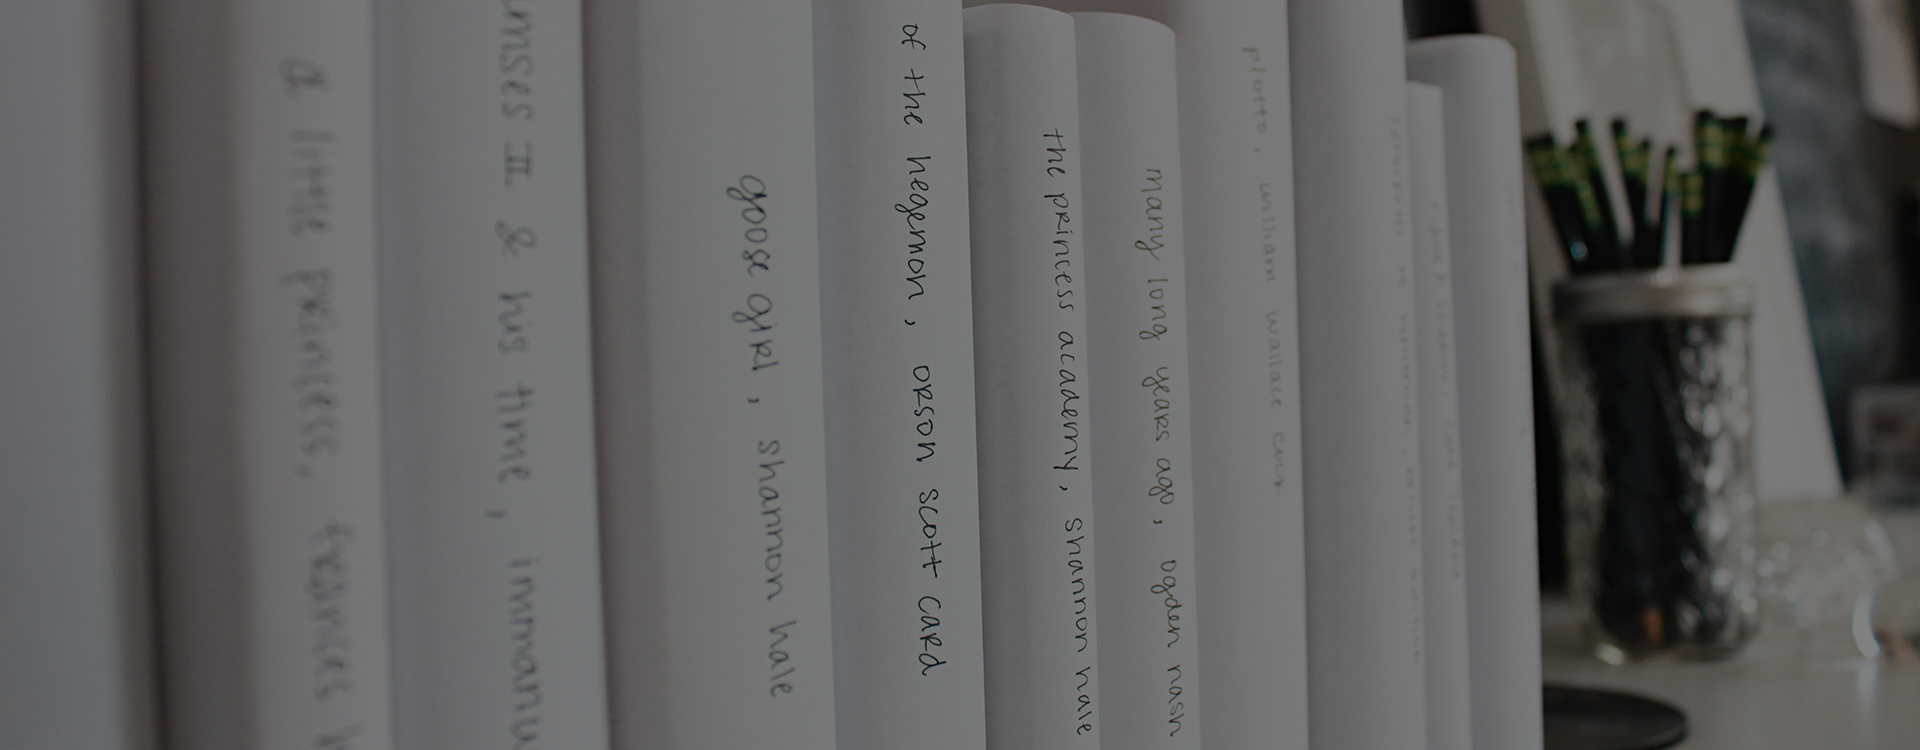 a little princess, frances
mses II & his time, immanu
goose girl, shannon hale
of the hegemon, orson scott card
the princess academy, shannon hale
many long years ago, ogden nash
plotto, william wallace cook